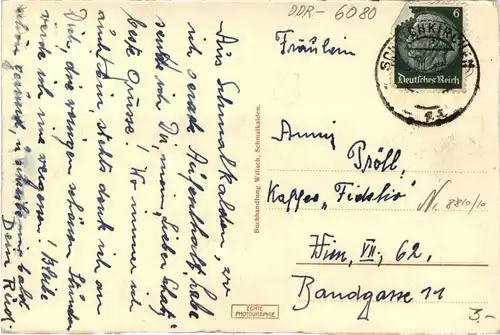 DDR- 6080
Aus Schmalkalden, wo
ich gerade Aufenthalt habe
sende ich Dir mein "lieber Schatz"
beste Grüsse! Wo immer ich
auch bin, stets denk ich an
Dich, die wenigen schönen Stunden
werde ich nie vergessen! Bleibe
schön gesund,
Dein Rud
Buchhandlung Wilisch, Schmalkalden.
ECHTE
PHOTOGRAPHIE
6
Deutsches Reich
Fräulein
Anny Pröll,
Kaffee "Fidelio"
N. 8810/10
Wien, VII, 62.
Bandgasse 11
3-